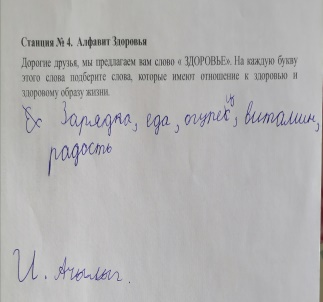 Станция № 4. Алфавит Здоровья
Дорогие друзья, мы предлагаем вам слово « ЗДОРОВЬЕ». На каждую букву
этого слова подберите слова, которые имеют отношение к здоровью и
здоровому образу жизни.
Зарядка, еда, огурец, витамин,
радость
И. Ачылыг.